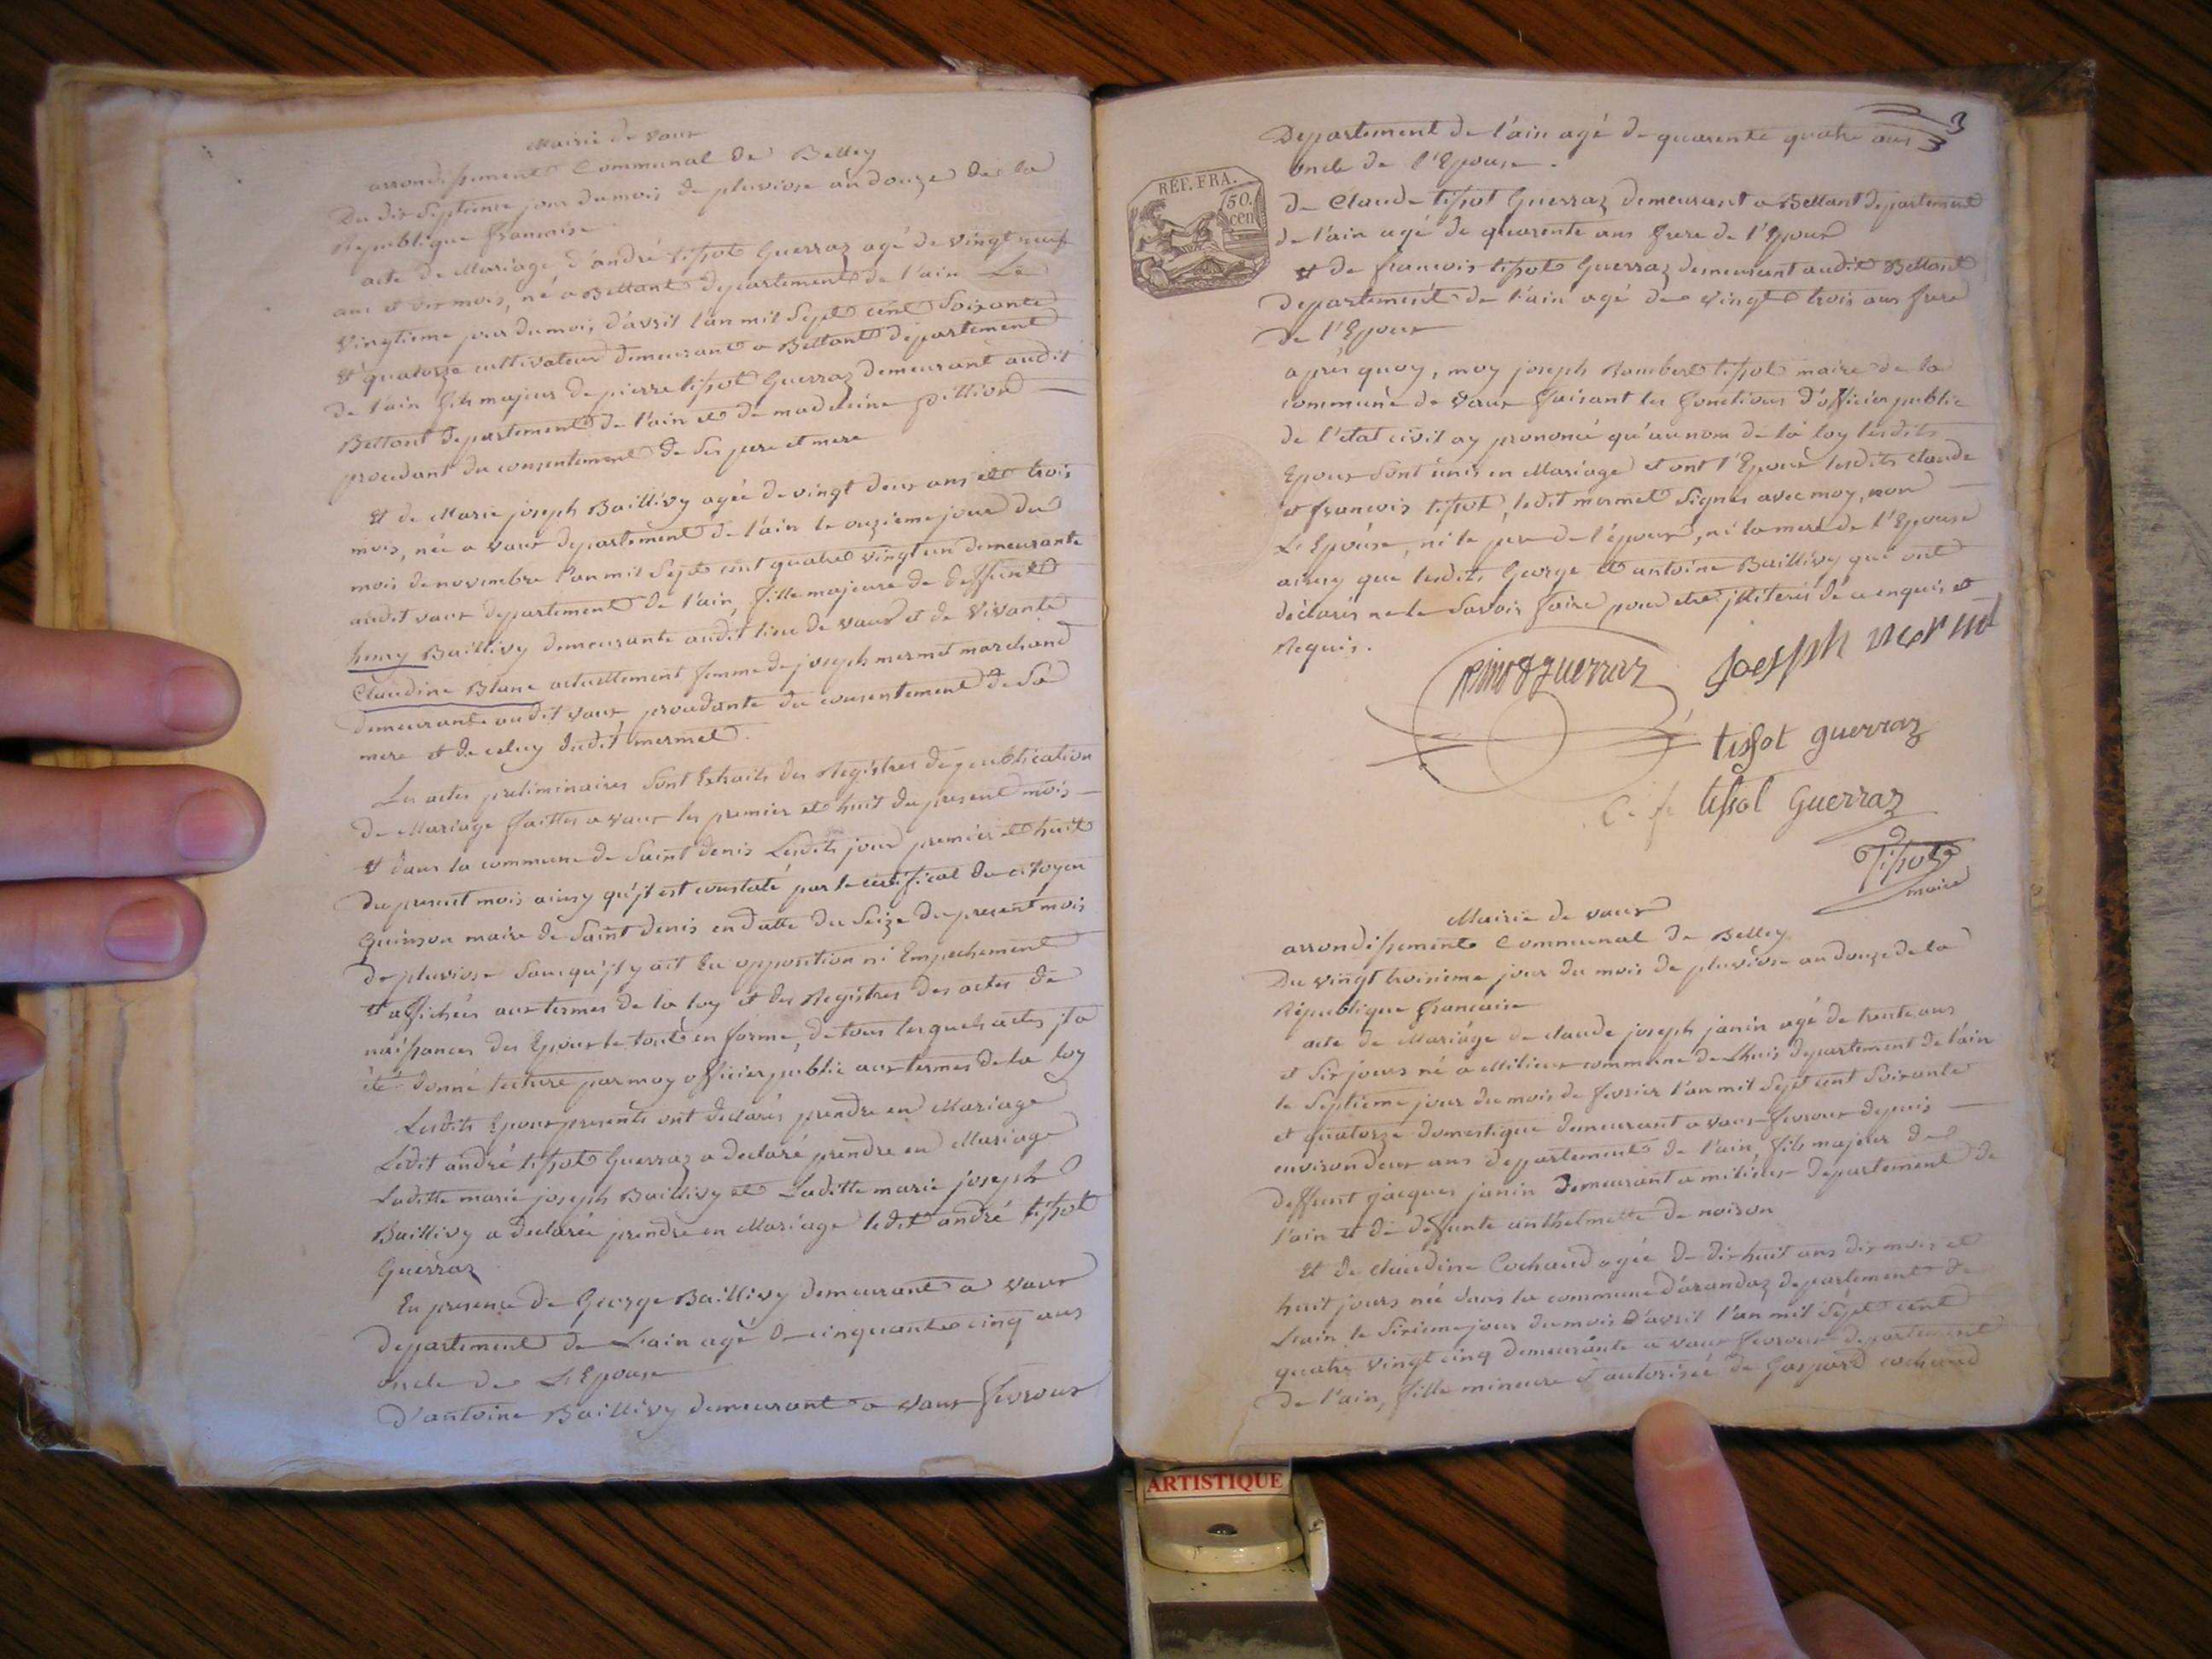 Mairie de vaux
arrondissement Communal de Belley
Du dix Septieme jour du mois de pluviose an douze de la
Republique francaise
acte de Mariage, d'andré tissot Guerraz agé de vingt neuf
ans et dix mois, né a Bettant departement de l'ain Le
vingtieme jour du mois d'avril l'an mil Sept cent Soixante
et quatorze cultivateur demeurant a Bettant departement
de l'ain fils majeur de pierre tissot Guerraz demeurant audit
Bettant departement de l'ain et de madeleine pillion
procedant du consentement de Ses pere et mere
Et de Marie joseph Baillivy agée de vingt deux ans et trois
mois, née a vaux departement de l'ain le onzieme jour du
mois de novembre l'an mil Sept cent quatre vingt un demeurante
audit vaux departement de l'ain, fille majeure de deffunt
henry Baillivy demeurante audit lieu de vaux et de vivante
Claudine Blanc actuellement femme de joseph mermet marchand
demeurante audit vaux, procedante du consentement de Sa
mere et de celuy dudit mermet.
Les actes preliminaires Sont Extraits des Registres de publication
de Mariage faittes a vaux les premier et huit du present mois
et dans la commune de Saint denis Lesdits jour premier et huit
du present mois ainsy qu'jl est constaté par le certificat du citoyen
Quinson maire de Saint denis en datte du Seize du present mois
de pluviose Sans qu'jl y ait Eu opposition ni Empechement
et affichés aux termes de la loy et des Registres des actes de
naissances des Epoux le tout en forme, de tous lesquels actes jl a
été donné lecture par moy officier public aux termes de la loy
Lesdits Epoux presents ont declarés prendre en Mariage
Ledit andré tissot Guerraz a declaré prendre en Mariage
Laditte marie joseph Baillivy et Laditte marie joseph
Baillivy a declarée prendre en Mariage ledit andré tissot
Guerraz
En presence de George Baillivy demeurant a vaux
departement de L'ain agé de cinquante cinq ans
oncle de L'Epouse
d'antoine Baillivy demeurant a vaux fevroux
3
Departement de l'ain agé de quarente quatre ans
oncle de l'Epouse.
RÉF. FRA.
50.
cen
de Claude tissot Guerraz demeurant a Bettant departement
de l'ain agé de quarente ans frere de l'Epoux
et de francois tissot Guerraz demeurant audit Bettant
departement de l'ain agé de vingt trois ans frere
de l'Epoux
après quoy, moy joseph Rambert tissot maire de la
commune de vaux faisant les fonctions d'officier public
de l'etat civil ay prononcé qu'au nom de la loy lesdits
Epoux Sont unis en Mariage et ont l'Epoux lesdits claude
et francois tissot, ledit mermet Signés avec moy, non
L'Epouse, ni le pere de l'époux, ni la mere de l'Epouse
ainsy que lesdits George et antoine Baillivy qui ont
déclarés ne le Savoir faire pour etre jlliterés de ce enquis et
Requis.
guerraz joseph mermet
tissot guerraz
c. f. tissot Guerraz
Tissot
maire
Mairie de vaux
arrondissement Communal de Belley
Du vingt troisieme jour du mois de pluviose an douze de la
Republique francaise
acte de Mariage de claude joseph janin agé de trente ans
et Six jours né a Milieux commune de Lhuis departement de l'ain
le Septieme jour du mois de fevrier l'an mil Sept cent Soixante
et quatorze domestique demeurant a vaux fevroux depuis
environ deux ans departement de l'ain, fils majeur de
deffunt jacques janin demeurant a milieux departement de
l'ain et de deffunte anthelmette de noison
Et de claudine Cochaud agée de dix huit ans dix mois et
huit jours née dans la commune d'arandaz departement de
L'ain le Sixieme jour du mois d'avril l'an mil Sept cent
quatre vingt cinq demeurante a vaux fevroux departement
de l'ain, fille mineure et autorisée de Gaspard cochaud
ARTISTIQUE